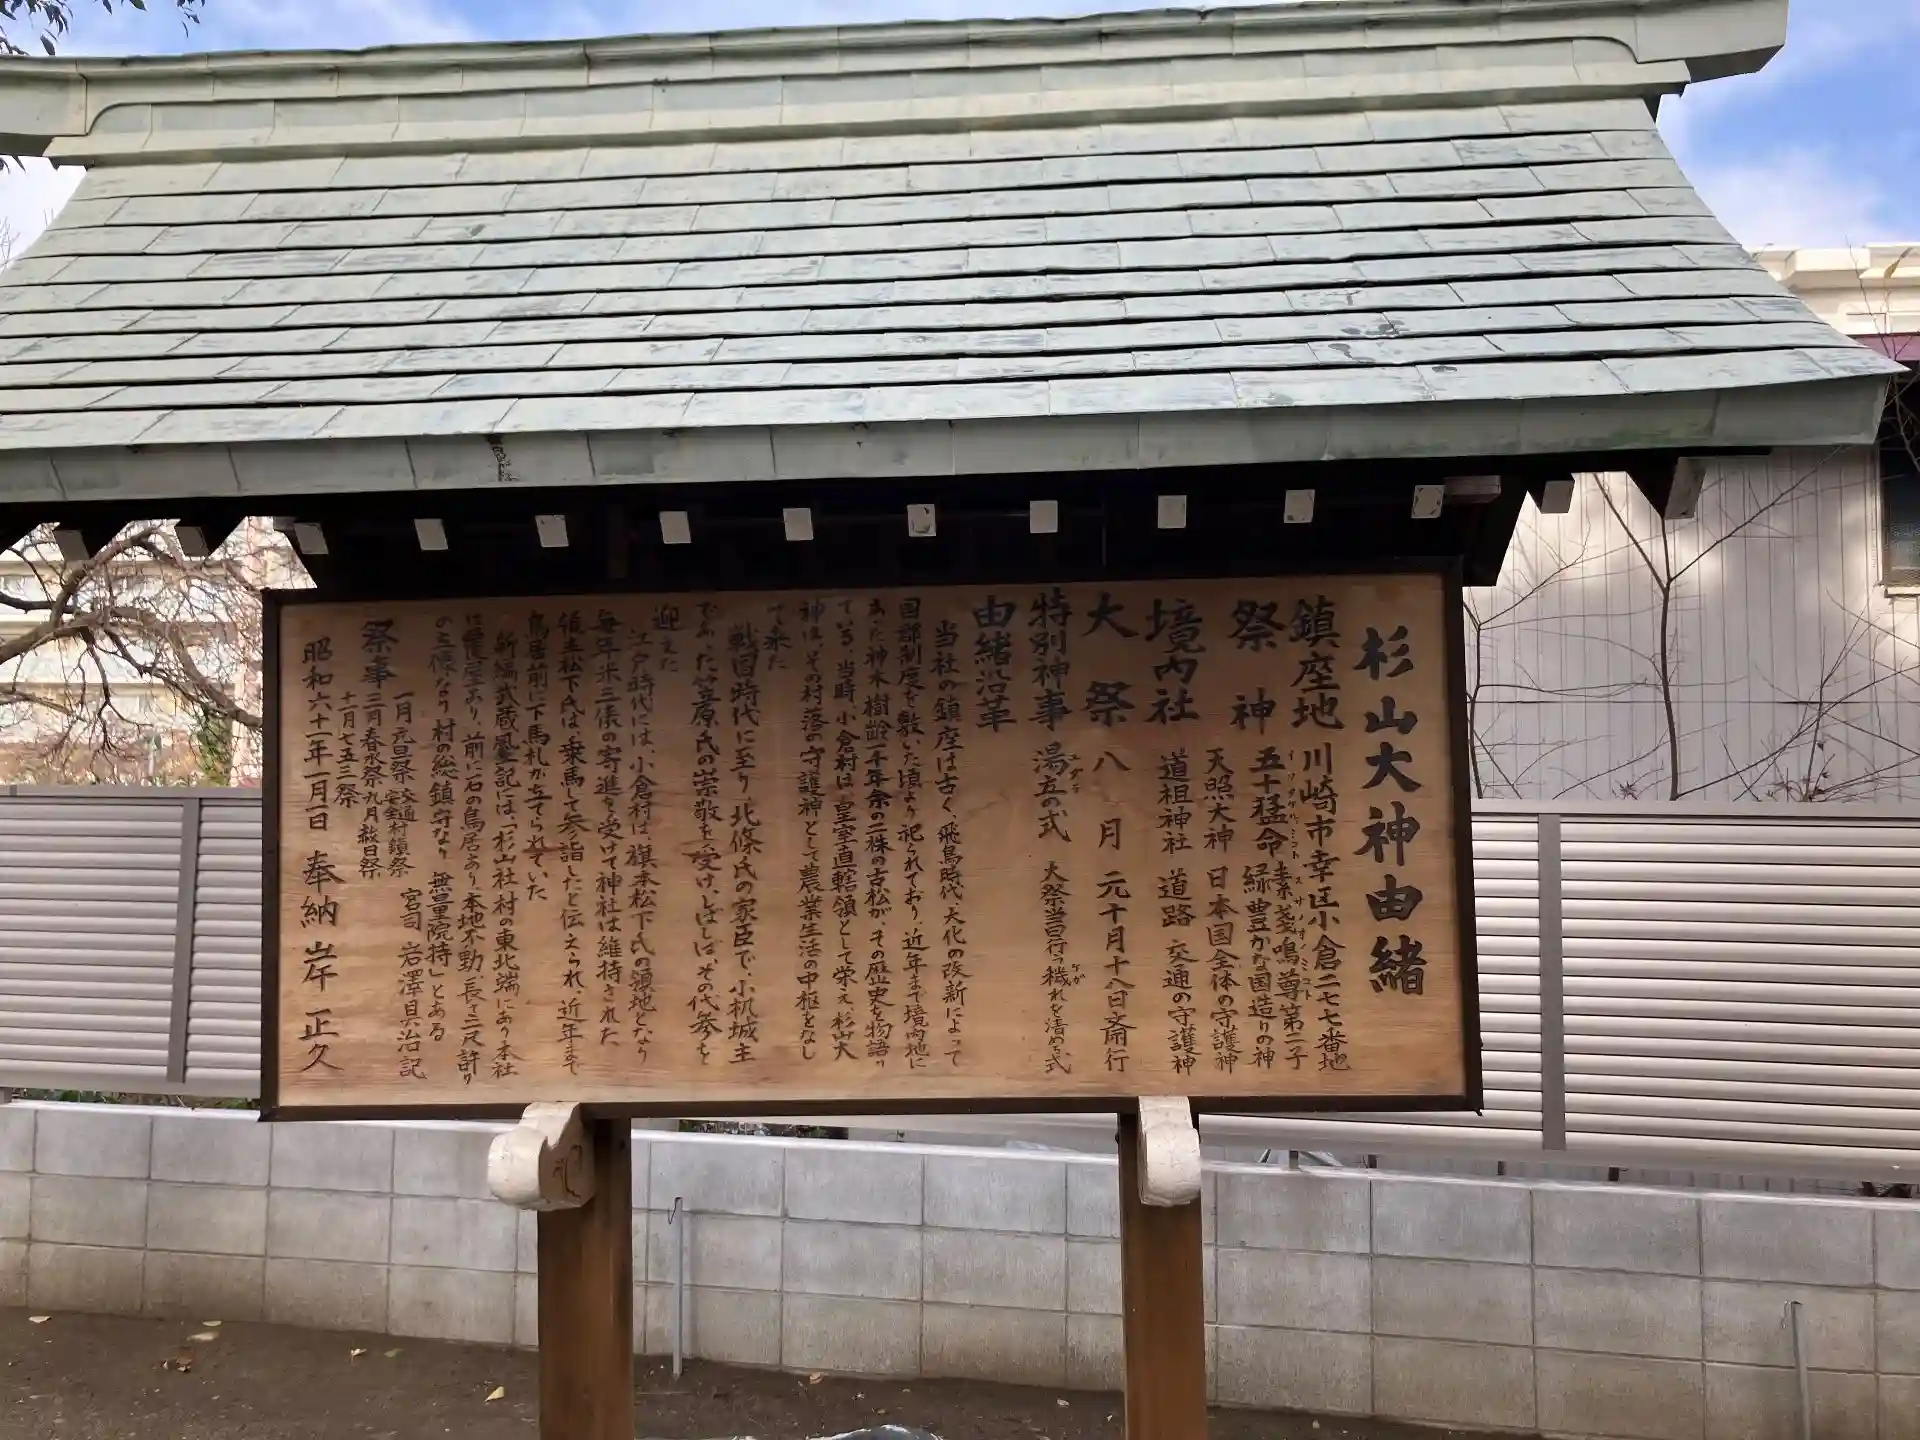 杉山大神由緒
鎮座地 川崎市幸区小倉二七七番地
祭神 五十猛命 素戔鳴尊第二子
イソタケルノミコト スサノオノミコト
緑豊かな国造りの神
天照大神 日本国全体の守護神
境内社 道祖神社 道路 交通の守護神
大祭 八月 元十月十八日斎行
特別神事 湯立の式 大祭当日行う穢れを清める式
ユダテ ケガ
由緒沿革
当社の鎮座は古く、飛鳥時代、大化の改新によって
国郡制度を敷いた頃より祀られており、近年まで境内地に
あった神木樹齢一千年余の二株の古松が、その歴史を物語っ
ている。当時、小倉村は、皇室直轄領として栄え、杉山大
神は、その村落の守護神として農業生活の中枢をなし
て来た
戦国時代に至り 北條氏の家臣で、小机城主
であった笠原氏の崇敬を受け、しばしば、その代参を
迎えた
江戸時代には、小倉村は、旗本松下氏の領地となり
毎年米三俵の寄進を受けて神社は維持された
領主松下氏は、乗馬して参詣したと伝えられ、近年まで
鳥居前に下馬札が立てられていた
新編武蔵風土記には、「杉山社村の東北端にあり本社
に覆屋あり、前に石の鳥居あり本地不動、長さ二尺許り
の立像なり 村の総鎮守なり 無量院持」とある
宮司 岩澤具治 記
祭事 一月元旦祭 交通安全村鎮祭
三月春水祭 九月敬日祭
十一月七五三祭
昭和六十一年一月一日 奉納 岸 正久